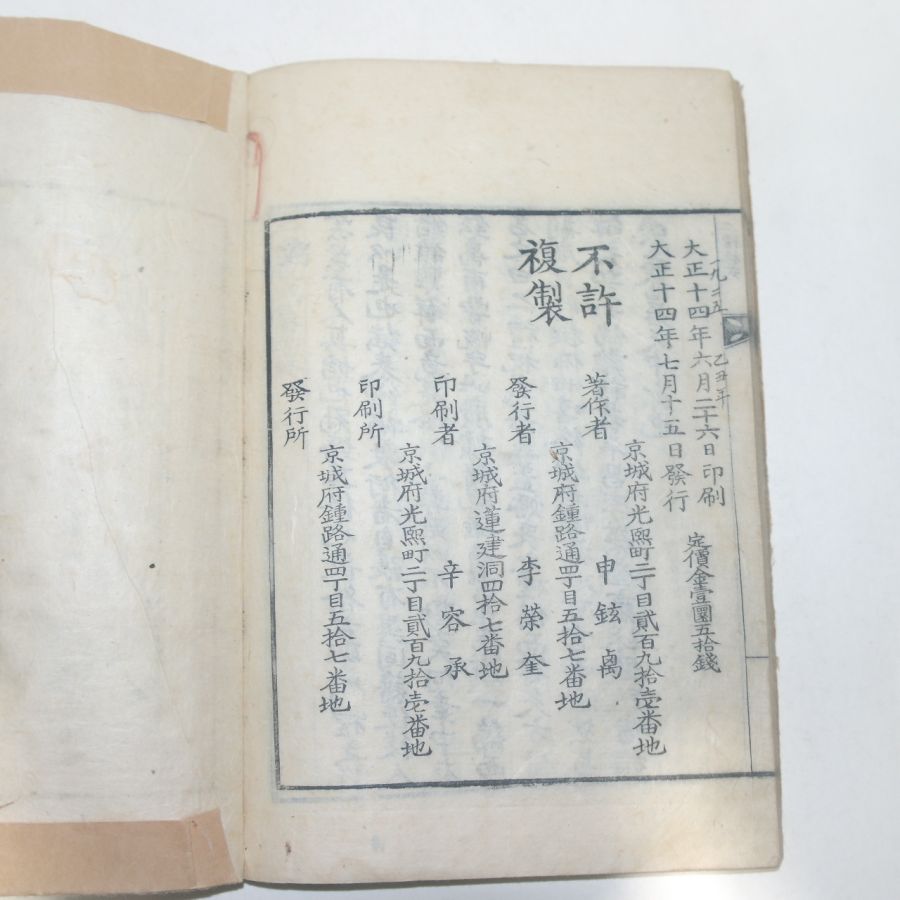 大正十四年六月二十六日印刷
一九二五 乙丑年
大正十四年七月十五日發行
定價金壹圜五拾錢
不許
複製
京城府光熙町二丁目貳百九拾壱番地
著作者 申鉉卨
京城府鍾路通四丁目五拾七番地
發行者 李榮奎
京城府蓮建洞四拾七番地
印刷者 辛容承
京城府光熙町二丁目貳百九拾壱番地
印刷所
京城府鍾路通四丁目五拾七番地
發行所